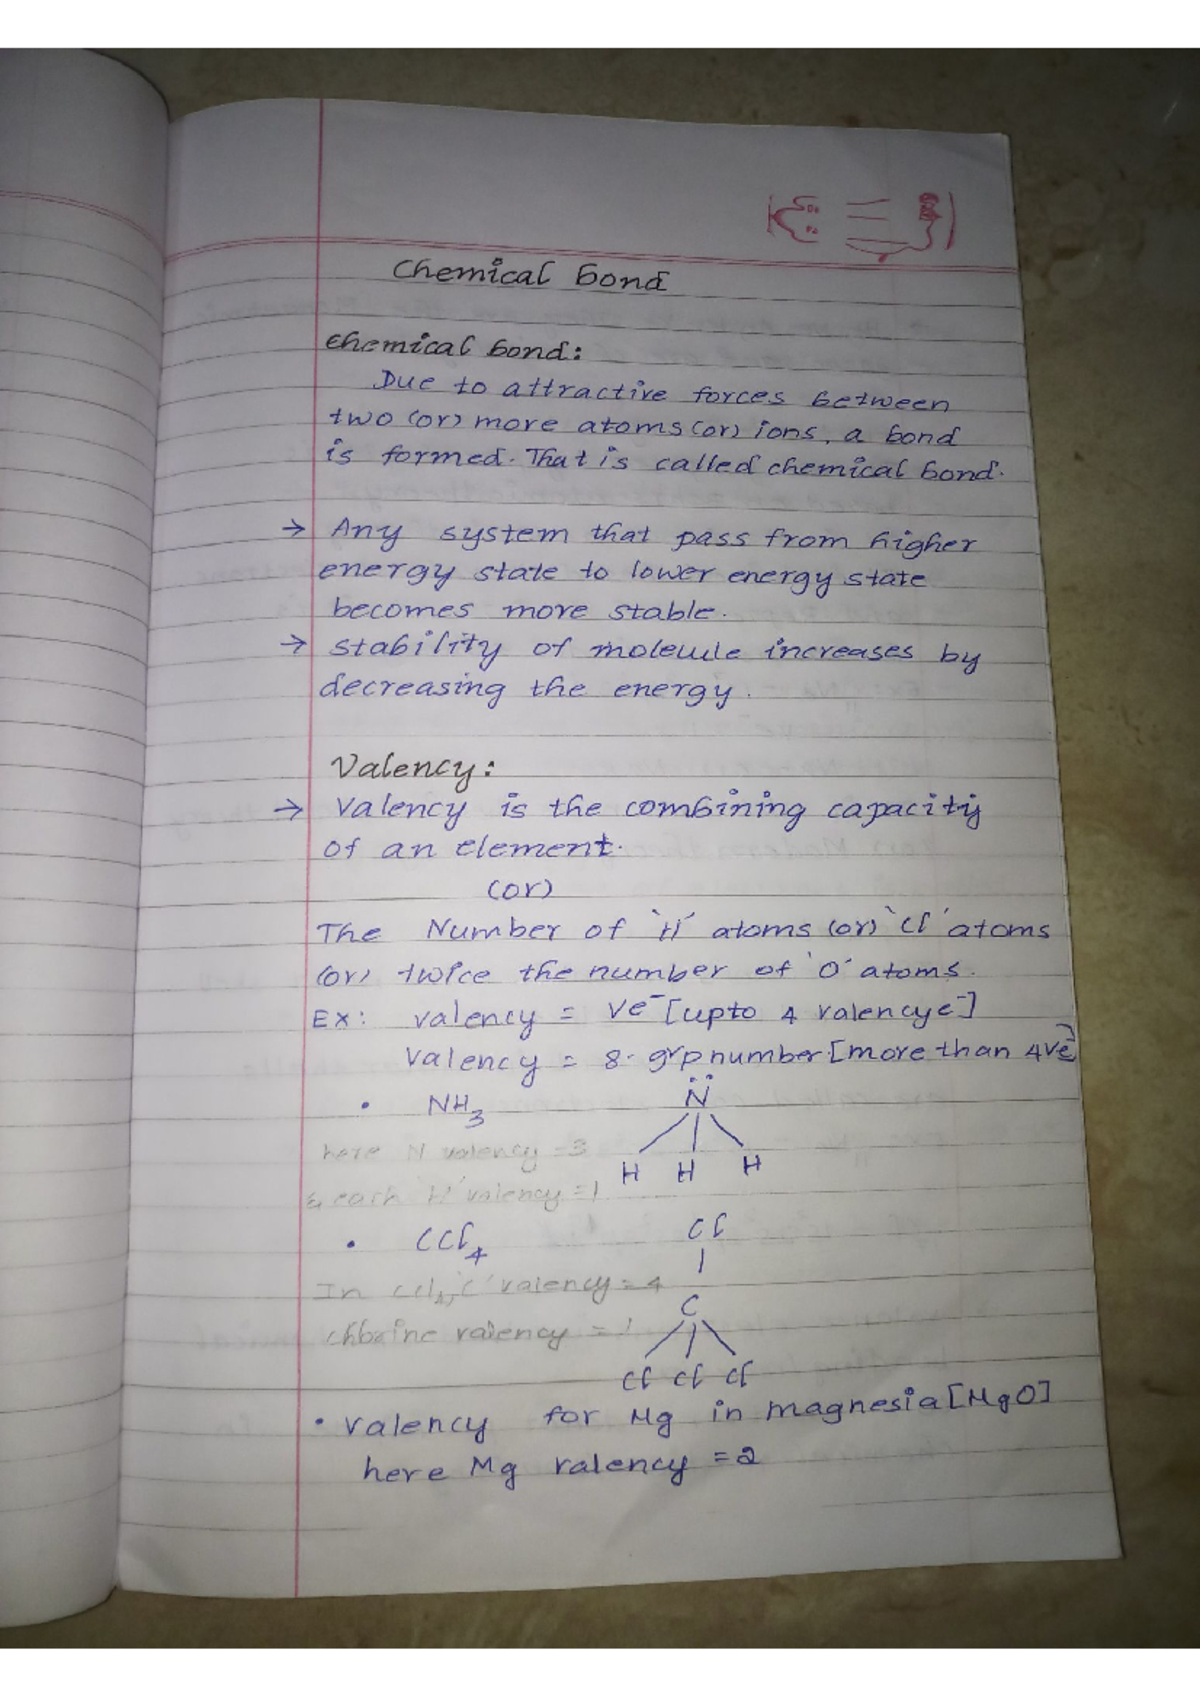 Chemical bond
Chemical bond:
Due to attractive forces between
two (or) more atoms (or) ions, a bond
is formed. That is called chemical bond.
→ Any system that pass from higher
energy state to lower energy state
becomes more stable.
→ stability of molecule increases by
decreasing the energy.
Valency:
→ Valency is the combining capacity
of an element.
(or)
The Number of 'H' atoms (or) 'Cl' atoms
(or) twice the number of 'O' atoms.
Ex: valency = Ve⁻ [upto 4 valency e⁻]
Valency = 8 - grp number [more than 4Ve⁻]
• NH₃ N̈
here N valency = 3
H H H
& each 'H' valency = 1
Cl
• CCl₄
In CCl₄, 'C' valency = 4
C
chlorine valency = 1
Cl Cl Cl
• valency for Mg in magnesia [MgO]
here Mg valency = 2